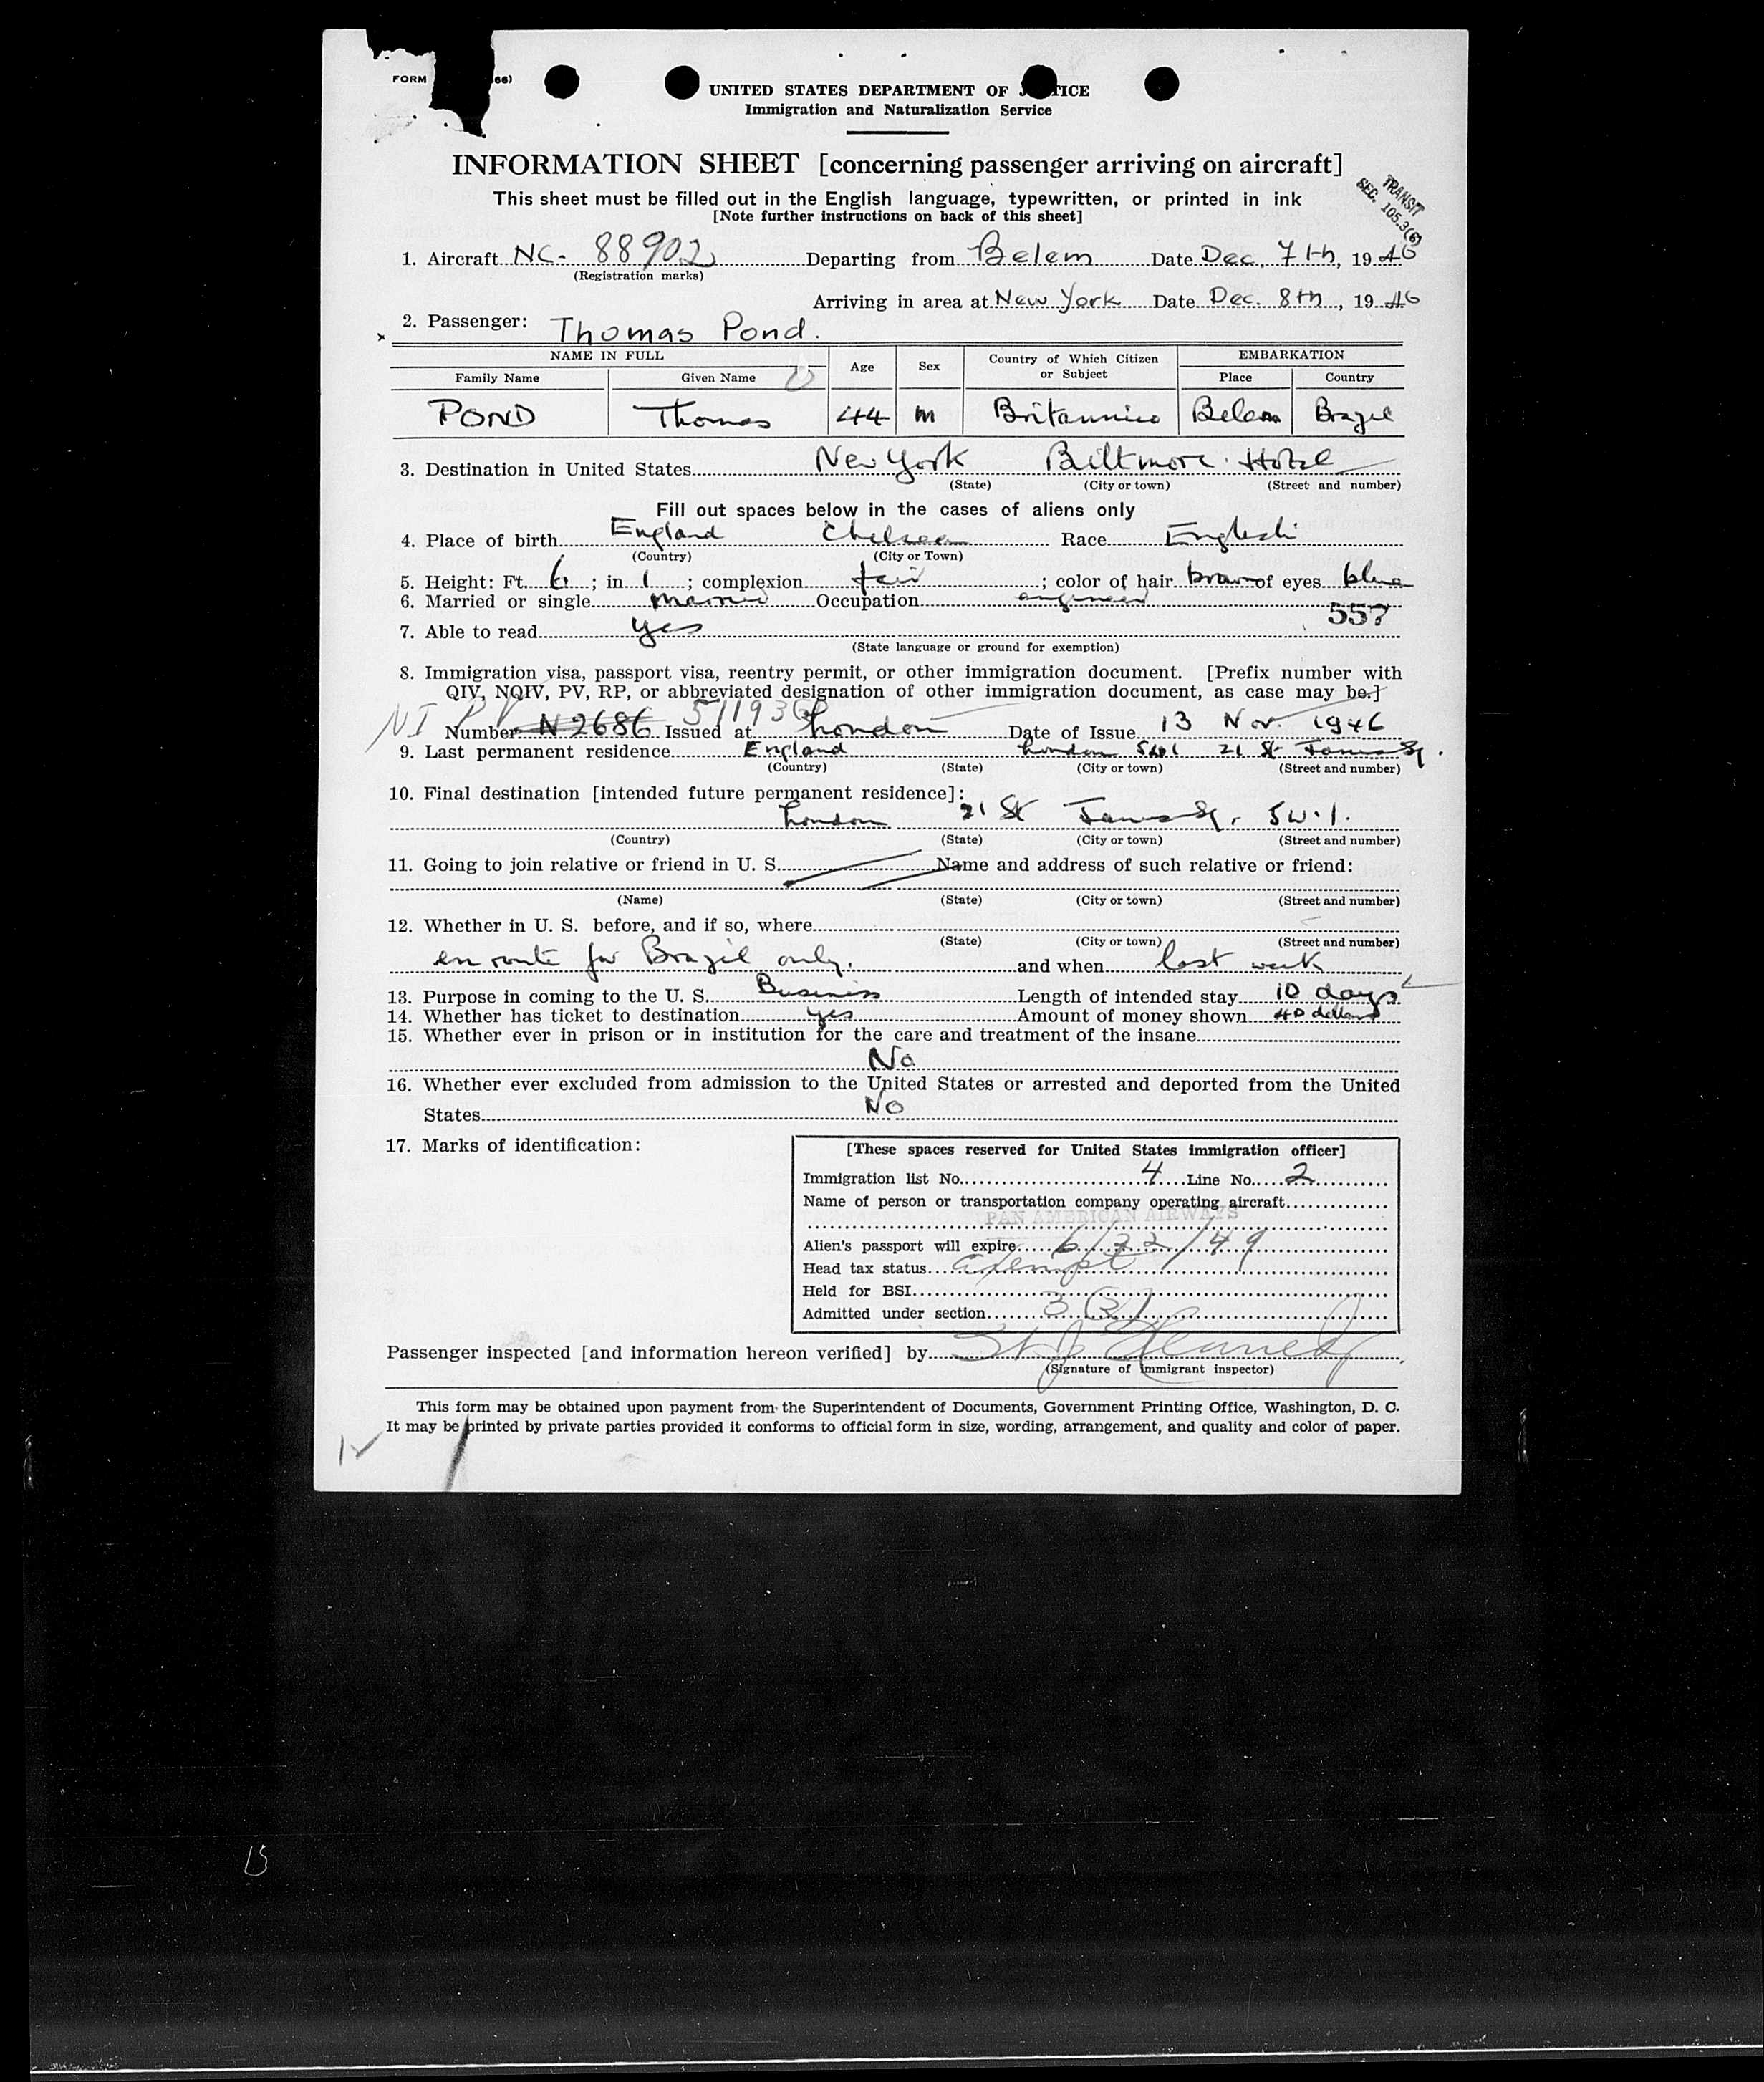 FORM 66)
UNITED STATES DEPARTMENT OF J TICE
Immigration and Naturalization Service
INFORMATION SHEET [concerning passenger arriving on aircraft]
TRANSIT
SEC. 105.3(6)
This sheet must be filled out in the English language, typewritten, or printed in ink
[Note further instructions on back of this sheet]
1. Aircraft NC- 88902 Departing from Belem Date Dec. 7th, 1946
(Registration marks)
Arriving in area at New York Date Dec. 8th, 1946
2. Passenger: Thomas Pond.
NAME IN FULL Age Sex Country of Which Citizen or Subject EMBARKATION
Family Name Given Name Place Country
POND Thomas 44 M Britannico Belem Brazil
3. Destination in United States New York Biltmore Hotel
(State) (City or town) (Street and number)
Fill out spaces below in the cases of aliens only
4. Place of birth England Chelsea Race English
(Country) (City or Town)
5. Height: Ft. 6; in. 1; complexion fair; color of hair brown of eyes blue
6. Married or single married Occupation engineer
557
7. Able to read yes
(State language or ground for exemption)
8. Immigration visa, passport visa, reentry permit, or other immigration document. [Prefix number with
QIV, NQIV, PV, RP, or abbreviated designation of other immigration document, as case may be.]
NI PV 511936
Number N2686 Issued at London Date of Issue 13 Nov. 1946
9. Last permanent residence England London SW1 21 St James Sq.
(Country) (State) (City or town) (Street and number)
10. Final destination [intended future permanent residece]:
London 21 St James Sq. SW.1.
(Country) (State) (City or town) (Street and number)
11. Going to join relative or friend in U. S. Name and address of such relative or friend:
(Name) (State) (City or town) (Street and number)
12. Whether in U. S. before, and if so, where
(State) (City or town) (Street and number)
en route for Brazil only. and when last week
13. Purpose in coming to the U. S. Business Length of intended stay 10 days
14. Whether has ticket to destination yes Amount of money shown 40 dollars
15. Whether ever in prison or in institution for the care and treatment of the insane
No
16. Whether ever excluded from admission to the United States or arrested and deported from the United
States No
17. Marks of identification:
[These spaces reserved for United States immigration officer]
Immigration list No. 4 Line No. 2
Name of person or transportation company operating aircraft
PAN AMERICAN AIRWAYS
Alien's passport will expire 6/22/49
Head tax status exempt
Held for BSI
Admitted under section 3(3)
Passenger inspected [and information hereon verified] by
(Signature of immigrant inspector)
This form may be obtained upon payment from the Superintendent of Documents, Government Printing Office, Washington, D. C.
It may be printed by private parties provided it conforms to official form in size, wording, arrangement, and quality and color of paper.